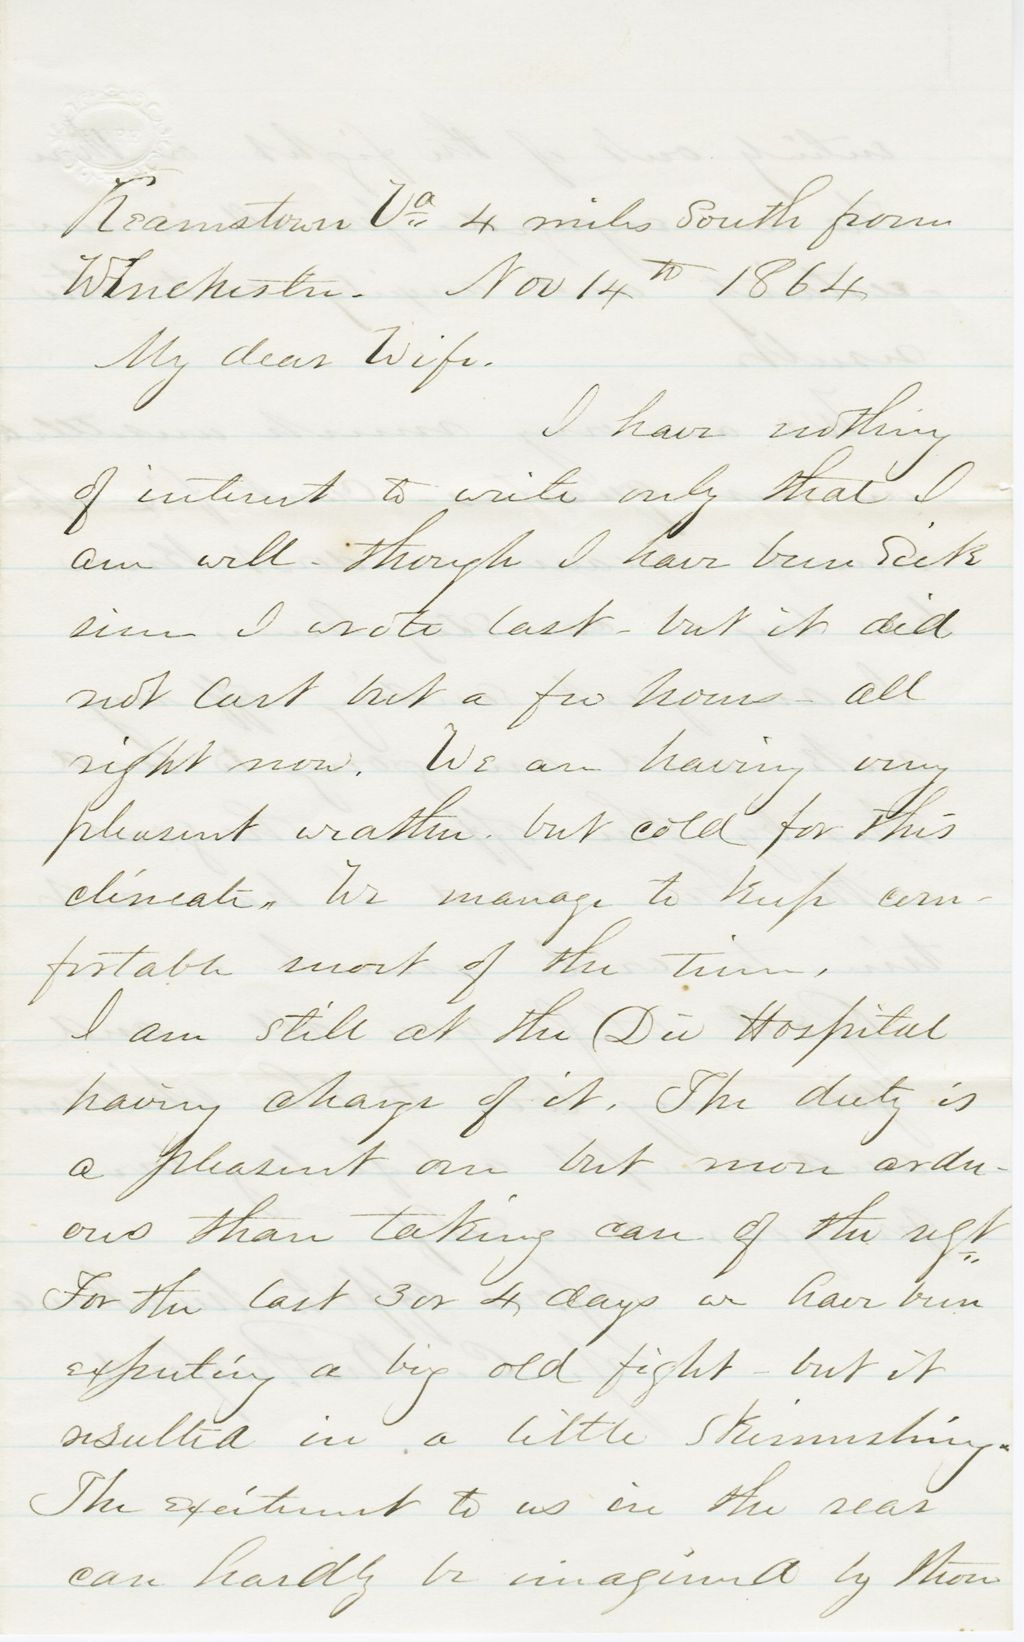 Kearnstown Va 4 miles South from
Winchester. Nov 14th 1864
My dear Wife.
I have nothing
of interest to write only that I
am well - though I have been Sick
since I wrote last - but it did
not last but a few hours - all
right now. We are having very
pleasent weather. but cold for this
climeate. We manage to keep com-
fortable most of the time.
I am still at the Div Hospital
having charge of it. The duty is
a pleasent one but more ardu-
ous than taking care of the regt
For the last 3 or 4 days we have been
expecting a big old fight - but it
resulted in a little Skirmishing.
The excitement to us in the rear
can hardly be imagined by those